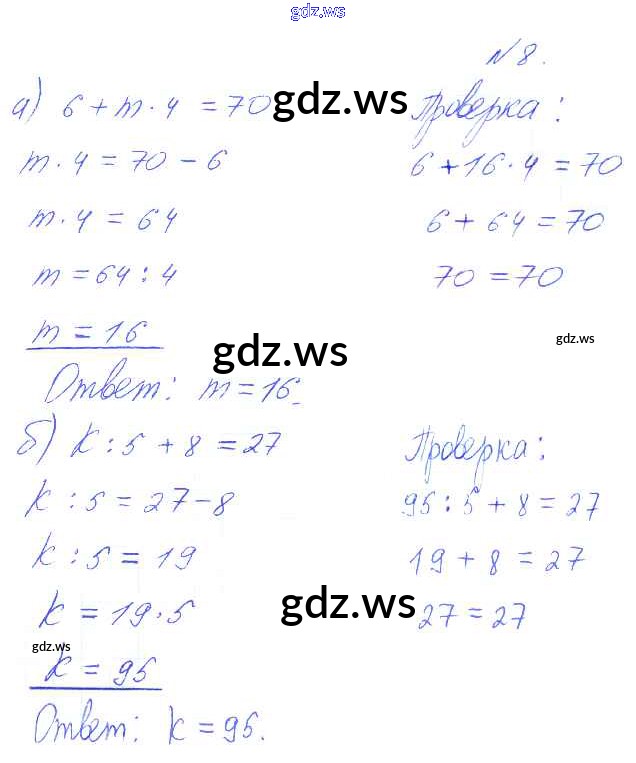 gdz.ws
№ 8.
а) 6 + m · 4 = 70
gdz.ws
m · 4 = 70 - 6
m · 4 = 64
m = 64 : 4
m = 16
Ответ: m = 16.
Проверка:
6 + 16 · 4 = 70
6 + 64 = 70
70 = 70
gdz.ws
gdz.ws
б) k : 5 + 8 = 27
k : 5 = 27 - 8
k : 5 = 19
k = 19 · 5
gdz.ws
k = 95
Ответ: k = 95.
Проверка:
95 : 5 + 8 = 27
19 + 8 = 27
27 = 27
gdz.ws